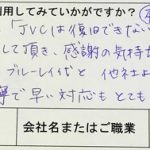 利用してみていかがですか?
「JVCは復旧できない
して頂き、感謝の気持ち
ブルーレイだと 他社よ
寧で早い対応も とても
会社名またはご職業